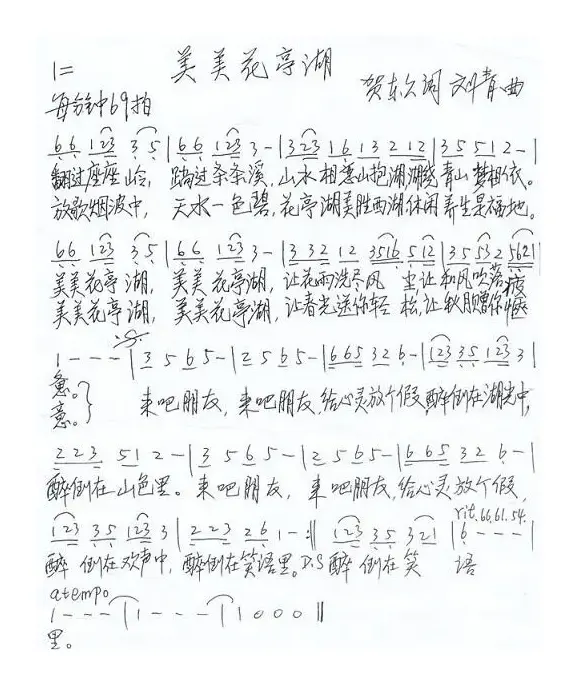 美美花亭湖
1=
贺东久词 刘青曲
每分钟69拍
6 6 1 2 3 3 5 | 6 6 1 2 3 3 - | 3 2 3 1 6 1 3 2 1 2 | 3 5 5 1 2 - |
翻过座座山岭，踏过条条溪，山水相恋山抱湖湖绕青山梦相依。
放歌烟波中，天水一色碧，花亭湖美胜西湖休闲养生是福地。
6 6 1 2 3 3 5 | 6 6 1 2 3 3 - | 3 3 2 1 2 3 5 1 6 5 1 2 | 3 5 5 3 2 5 6 2 1 |
美美花亭湖，美美花亭湖，让花雨洗尽风 尘让和风吹落疲
美美花亭湖，美美花亭湖，让春光送你轻 松，让秋月赠你惬
1 - - - | 3 5 6 5 - | 2 5 6 5 - | 6 6 5 3 2 6 - | 1 2 3 3 5 1 2 3 3 |
惫。} 来吧朋友，来吧朋友，给心灵放个假，醉倒在湖光中，
意。
2 2 3 5 1 2 - | 3 5 6 5 - | 2 5 6 5 - | 6 6 5 3 2 6 - |
醉倒在山色里。来吧朋友，来吧朋友，给心灵放个假，
rit. 66. 61. 54.
1 2 3 3 5 1 2 3 3 | 2 2 3 2 6 1 - :‖ 1 2 3 3 5 3 2 1 | 6 - - - |
醉 倒在欢声中，醉倒在笑语里。D.S 醉 倒在笑 语
a tempo
1 - - - | 1 - - - | 1 0 0 0 ‖
里。